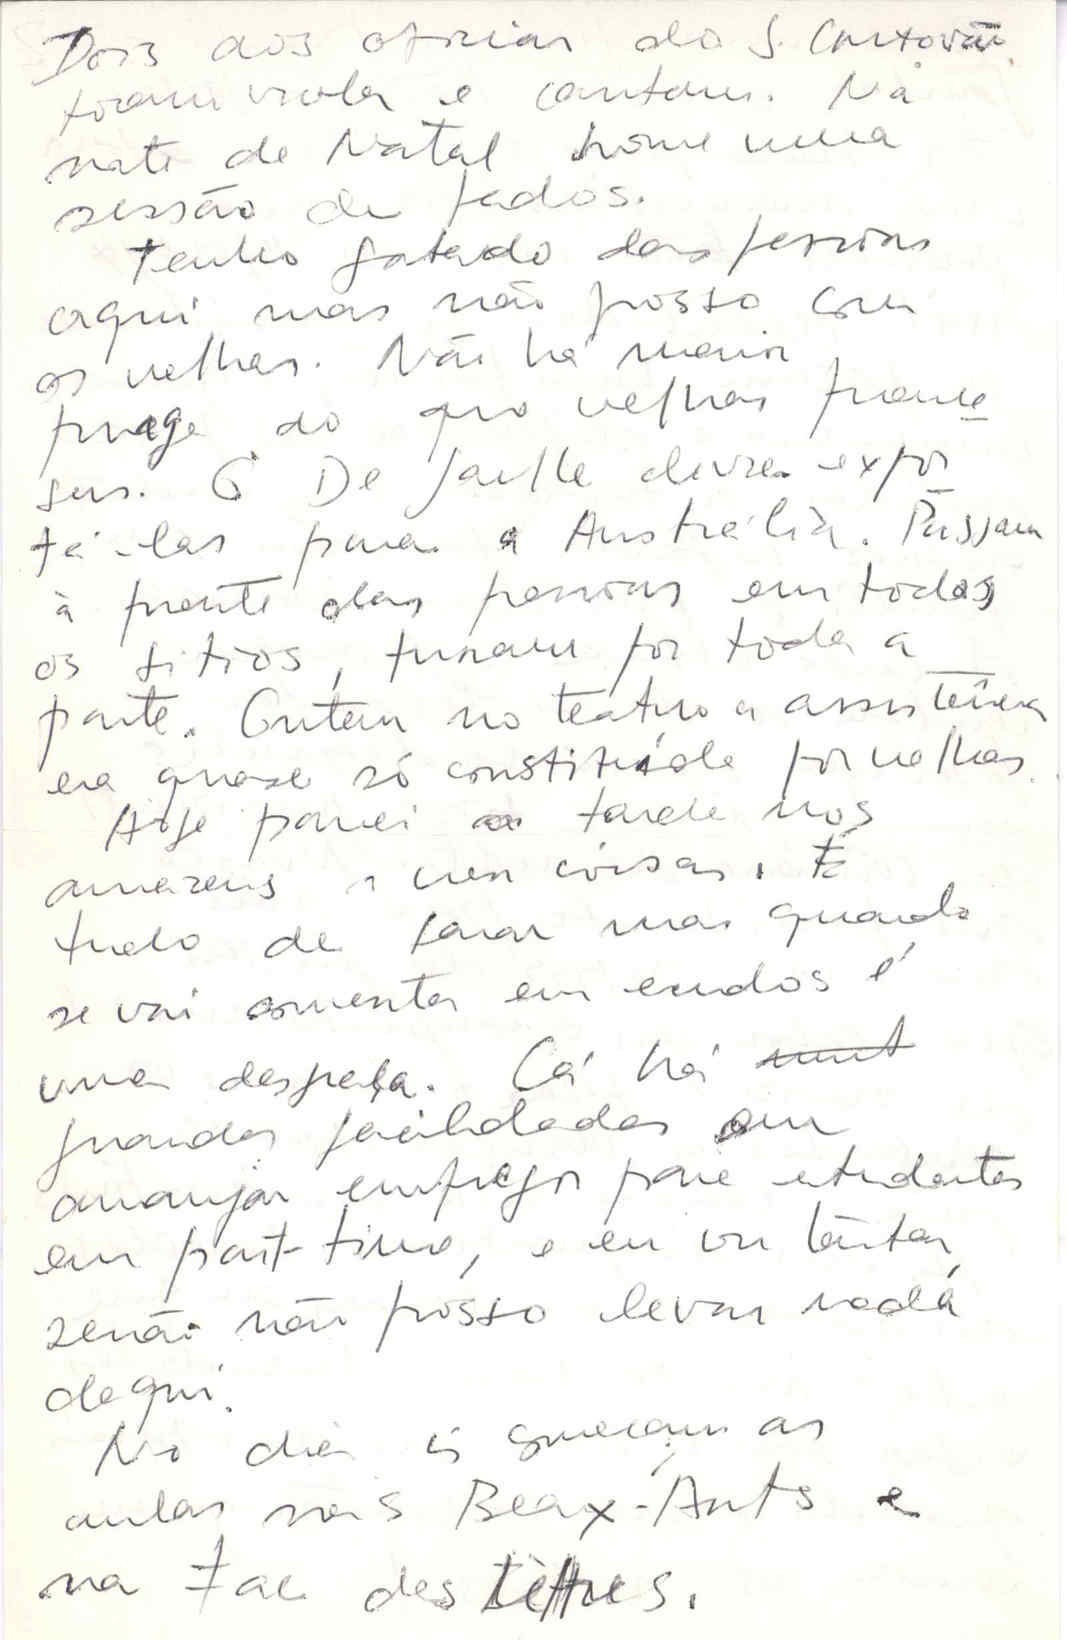 Dois dos oficiais do S. Cristovão
tocam viola e cantam. Na
noite de Natal houve uma
sessão de fados.
Tenho gostado das pessoas
aqui mas não posso com
as velhas. Não há maior
praga do que velhas france
sas. O De Gaulle devia expor
tá-las para a Austrália. Passam
à frente das pessoas em todos
os sitios, fumam por toda a
parte. Ontem no teatro a assistência
era quase só constituída por velhas.
Hoje passei a tarde nos
armazens a ver coisas. É
tudo de tarar mas quando
se vai comentar em escudos é
uma desgraça. Cá há muit
grandes facilidades em
arranjar empregos para estudantes
em part-time, e eu vou tentar,
senão não posso levar nada
daqui.
No dia começam as
aulas nas Beaux-Arts e
na Fac des Lettres.